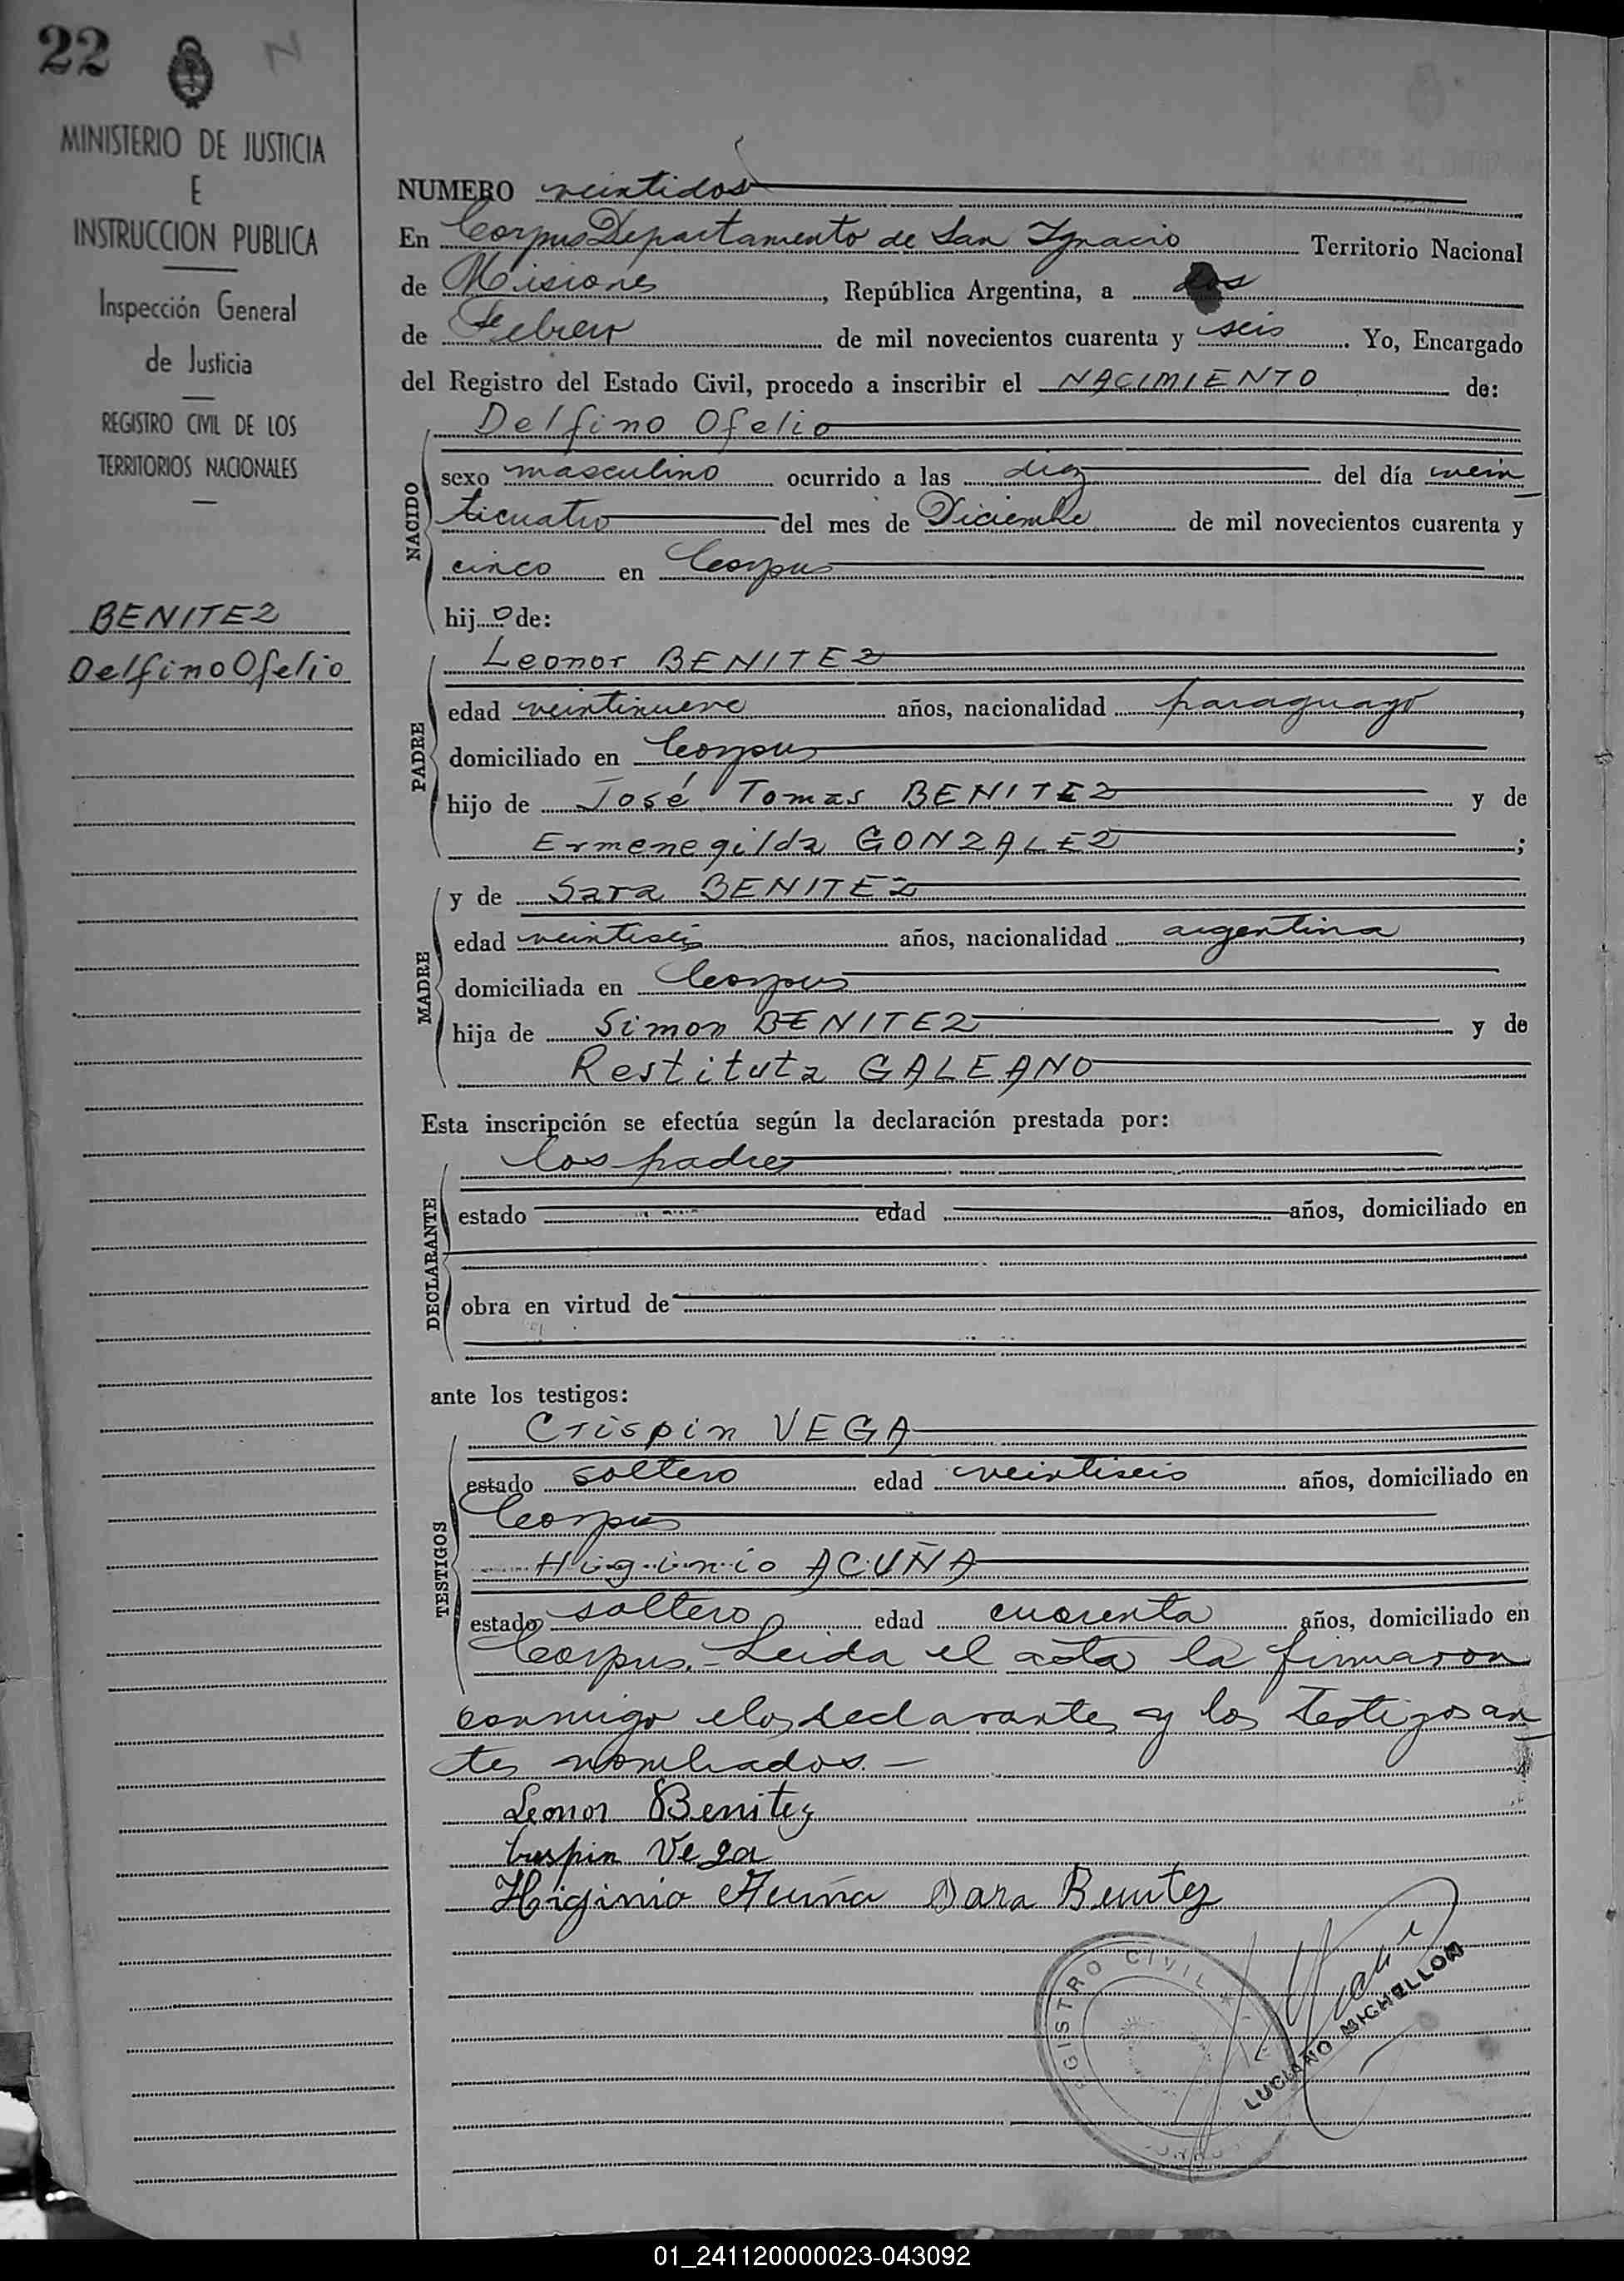 22
MINISTERIO DE JUSTICIA
E
INSTRUCCION PUBLICA
Inspección General
de Justicia
REGISTRO CIVIL DE LOS
TERRITORIOS NACIONALES
BENITEZ
Delfino Ofelio
NUMERO veintidos
En Corpus Departamento de San Ignacio Territorio Nacional
de Misiones, República Argentina, a dos
de Febrero de mil novecientos cuarenta y seis. Yo, Encargado
del Registro del Estado Civil, procedo a inscribir el NACIMIENTO de:
NACIDO
Delfino Ofelio
sexo masculino ocurrido a las diez del día vein
ticuatro del mes de Diciembre de mil novecientos cuarenta y
cinco en Corpus
hijo de:
PADRE
Leonor BENITEZ
edad veintinueve años, nacionalidad paraguayo,
domiciliado en Corpus
hijo de José Tomas BENITEZ y de
Ermenegilda GONZALEZ;
MADRE
y de Sara BENITEZ
edad veintiseis años, nacionalidad argentina,
domiciliada en Corpus
hija de Simon BENITEZ y de
Restituta GALEANO
Esta inscripción se efectúa según la declaración prestada por:
DECLARANTE
los padres
estado edad años, domiciliado en
obra en virtud de
ante los testigos:
TESTIGOS
Crispin VEGA
estado soltero edad veintiseis años, domiciliado en
Corpus
Higinio ACUÑA
estado soltero edad cuarenta años, domiciliado en
Corpus.- Leida el acta la firmaron
conmigo los declarantes y los testigos an
tes nombrados.-
Leonor Benitez
Crispin Vega
Higinio Acuña Sara Benitez
REGISTRO CIVIL
LUCIANO MICHELLON
01_241120000023-043092